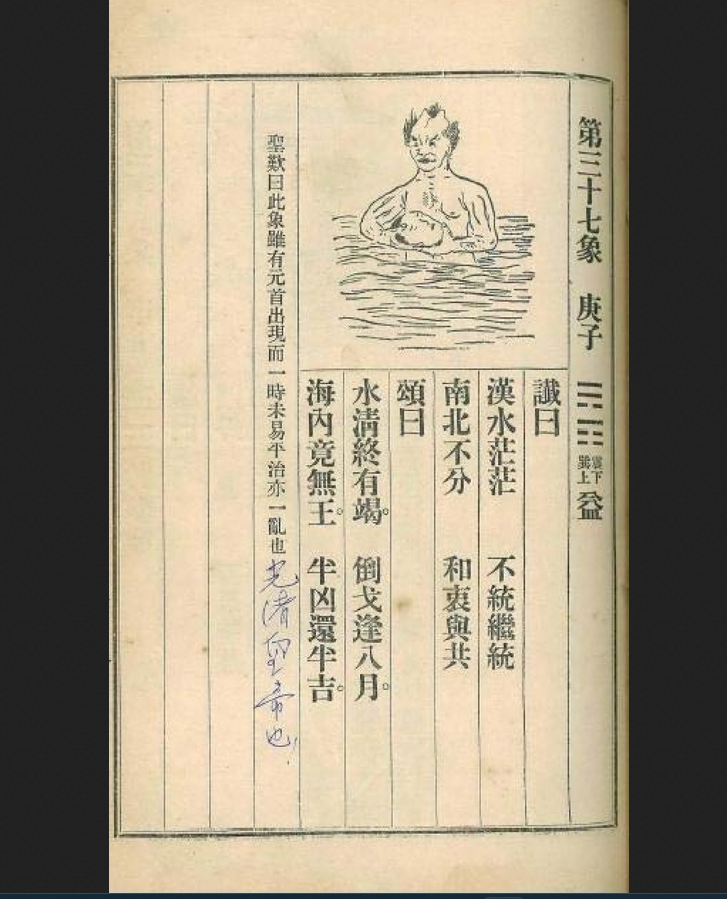 第三十七象 庚子 ䷩ 震下 巽上 益
讖曰
漢水茫茫 不統繼統
南北不分 和衷與共
頌曰
水清終有竭。倒戈逢八月。
海內竟無王。半凶還半吉。
聖歎曰此象雖有元首出現而一時未易平治亦一亂也 光绪皇帝也!